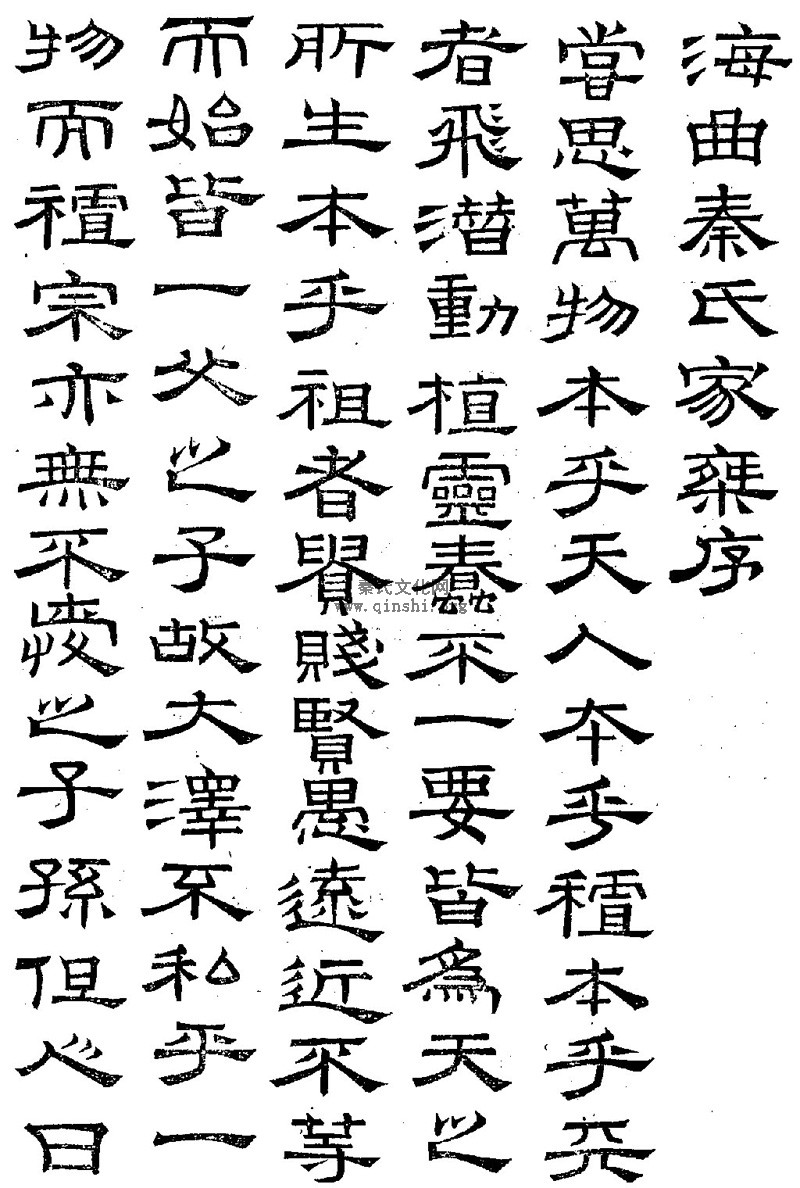 海曲秦氏家乘序
嘗思萬物本乎天人本乎祖本乎天
者飛潛動植靈蠢不一要皆為天之
所生本乎祖者貴賤賢愚遠近不等
而始皆一父之子故大澤不私乎一
物而祖宗亦無不愛之子孫但人日
秦氏文化网
www.qinshi.org